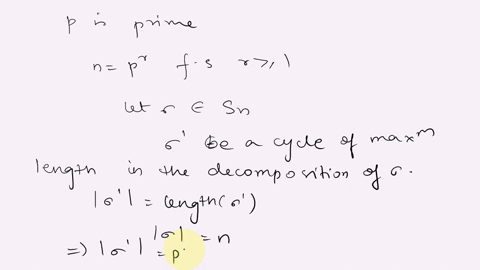 p is prime
n = p^r f.s r ≥ 1
let σ ∈ Sn
σ' be a cycle of max^m
length in the decomposition of σ.
|σ'| = length(σ')
|σ| = n
⇒ |σ'| = p